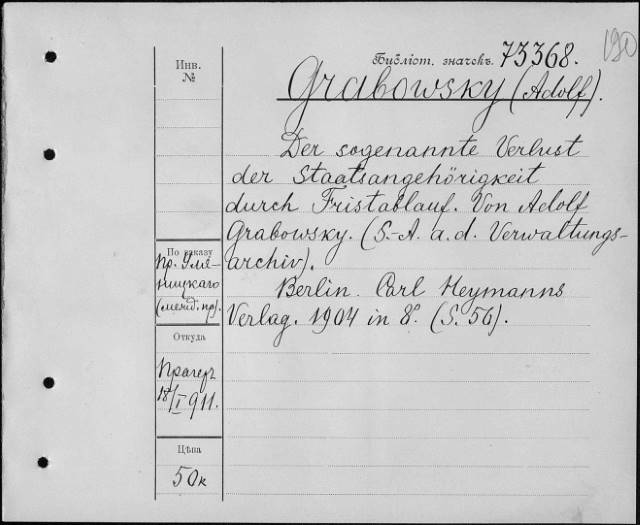 190
Инв.
№
Библіот. значекъ. 73368.
Grabowsky (Adolf).
Der sogenannte Verlust
der Staatsangehörigkeit
durch Fristablauf. Von Adolf
Grabowsky. (S.-A. a. d. Verwaltungs-
archiv).
Berlin. Carl Heymanns
Verlag. 1904 in 8°. (S. 56).
По заказу
пр. Уля-
ницкаго
(межд. пр).
Откуда
Прагеръ
18/I 911.
Цѣна
50к